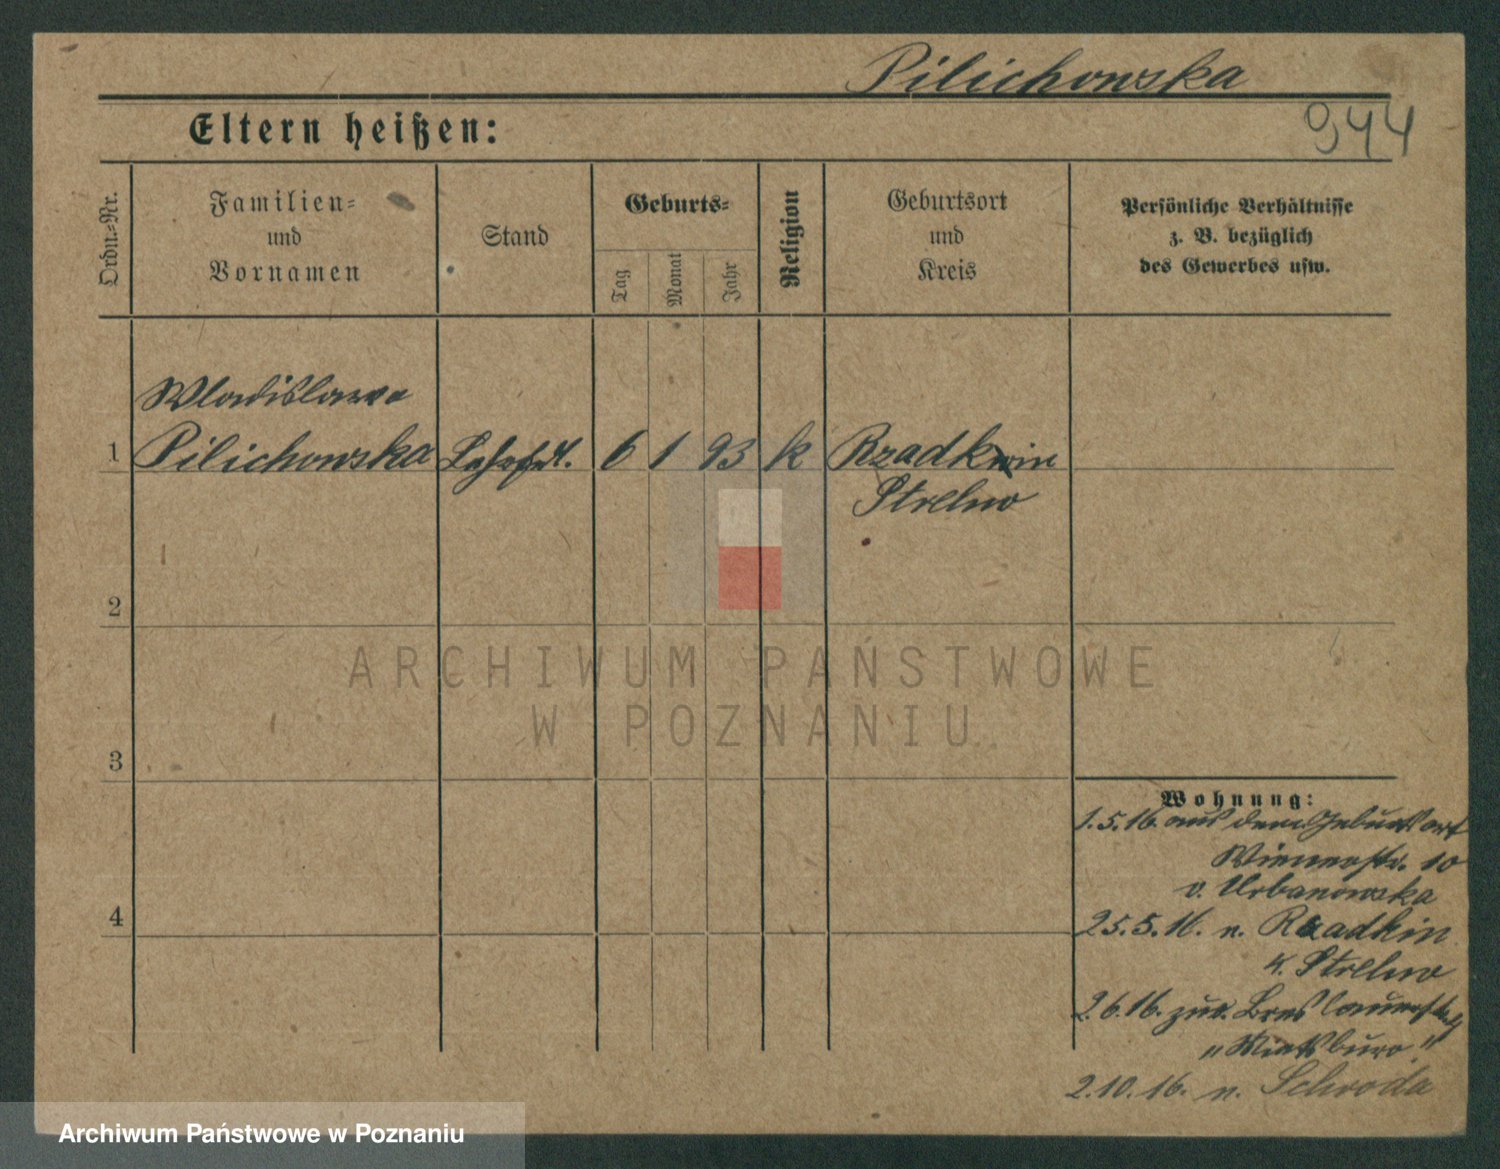 Pilichowska
944
Eltern heißen:
Ordn.-Nr.
Familien-
und
Vornamen
Stand
Geburts-
Tag
Monat
Jahr
Religion
Geburtsort
und
Kreis
Persönliche Verhältnisse
z. B. bezüglich
des Gewerbes usw.
Wladislawa
1 Pilichowska 6 1 93 k Rzadkwin
Strelno
2
3
4
Wohnung:
1.5.16. aus dem Geburtsort
Wienerstr. 10
v. Urbanowska
25.5.16. n. Rzadkin
K. Strelno
2.6.16. zur. Breslauerstr.
"Mietsburo"
2.10.16. n. Schroda
ARCHIWUM PAŃSTWOWE
W POZNANIU
Archiwum Państwowe w Poznaniu